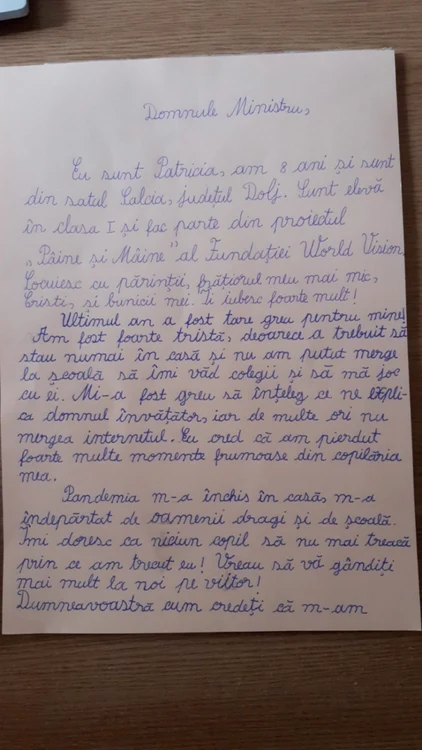 Domnule Ministru,
Eu sunt Patricia, am 8 ani și sunt
din satul Salcia, județul Dolj. Sunt elevă
în clasa I și fac parte din proiectul
„Pâine și Mâine" al Fundației World Vision.
Locuiesc cu părinții, frățiorul meu mai mic,
Cristi, și bunicii mei. Îi iubesc foarte mult!
Ultimul an a fost tare greu pentru mine!
Am fost foarte tristă, deoarece a trebuit să
stau numai în casă și nu am putut merge
la școală să îmi văd colegii și să mă joc
cu ei. Mi-a fost greu să înțeleg ce ne expli-
ca domnul învățător, iar de multe ori nu
mergea internetul. Eu cred că am pierdut
foarte multe momente frumoase din copilăria
mea.
Pandemia m-a închis în casă, m-a
îndepărtat de oamenii dragi și de școală.
Îmi doresc ca niciun copil să nu mai treacă
prin ce am trecut eu! Vreau să vă gândiți
mai mult la noi pe viitor!
Dumneavoastră cum credeți că m-am